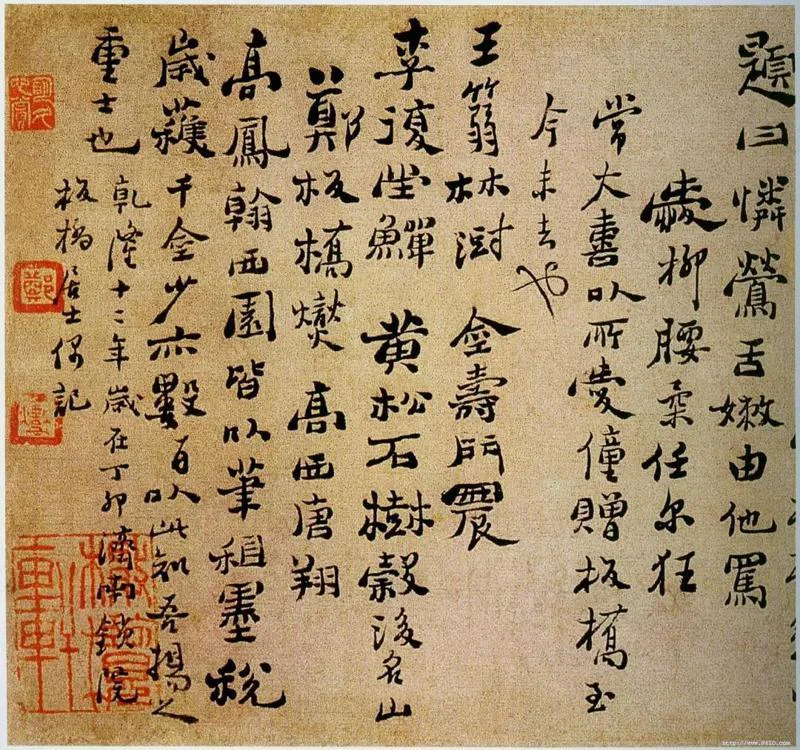 題曰憐鶯舌嫩由他罵
愛柳腰柔任尔狂
常大喜以所愛僮贈板橋至
今未去也
王篛林澍 金壽門農
李復堂鱓 黄松石樹穀後名山
鄭板橋燮 高西唐翔
高鳳翰西園皆以筆租墨稅
歲獲千金少亦數百以此知吾揚之
重士也
乾隆十二年歲在丁卯濟南鎖院
板橋居士偶記
鄭
http://www.9610.com